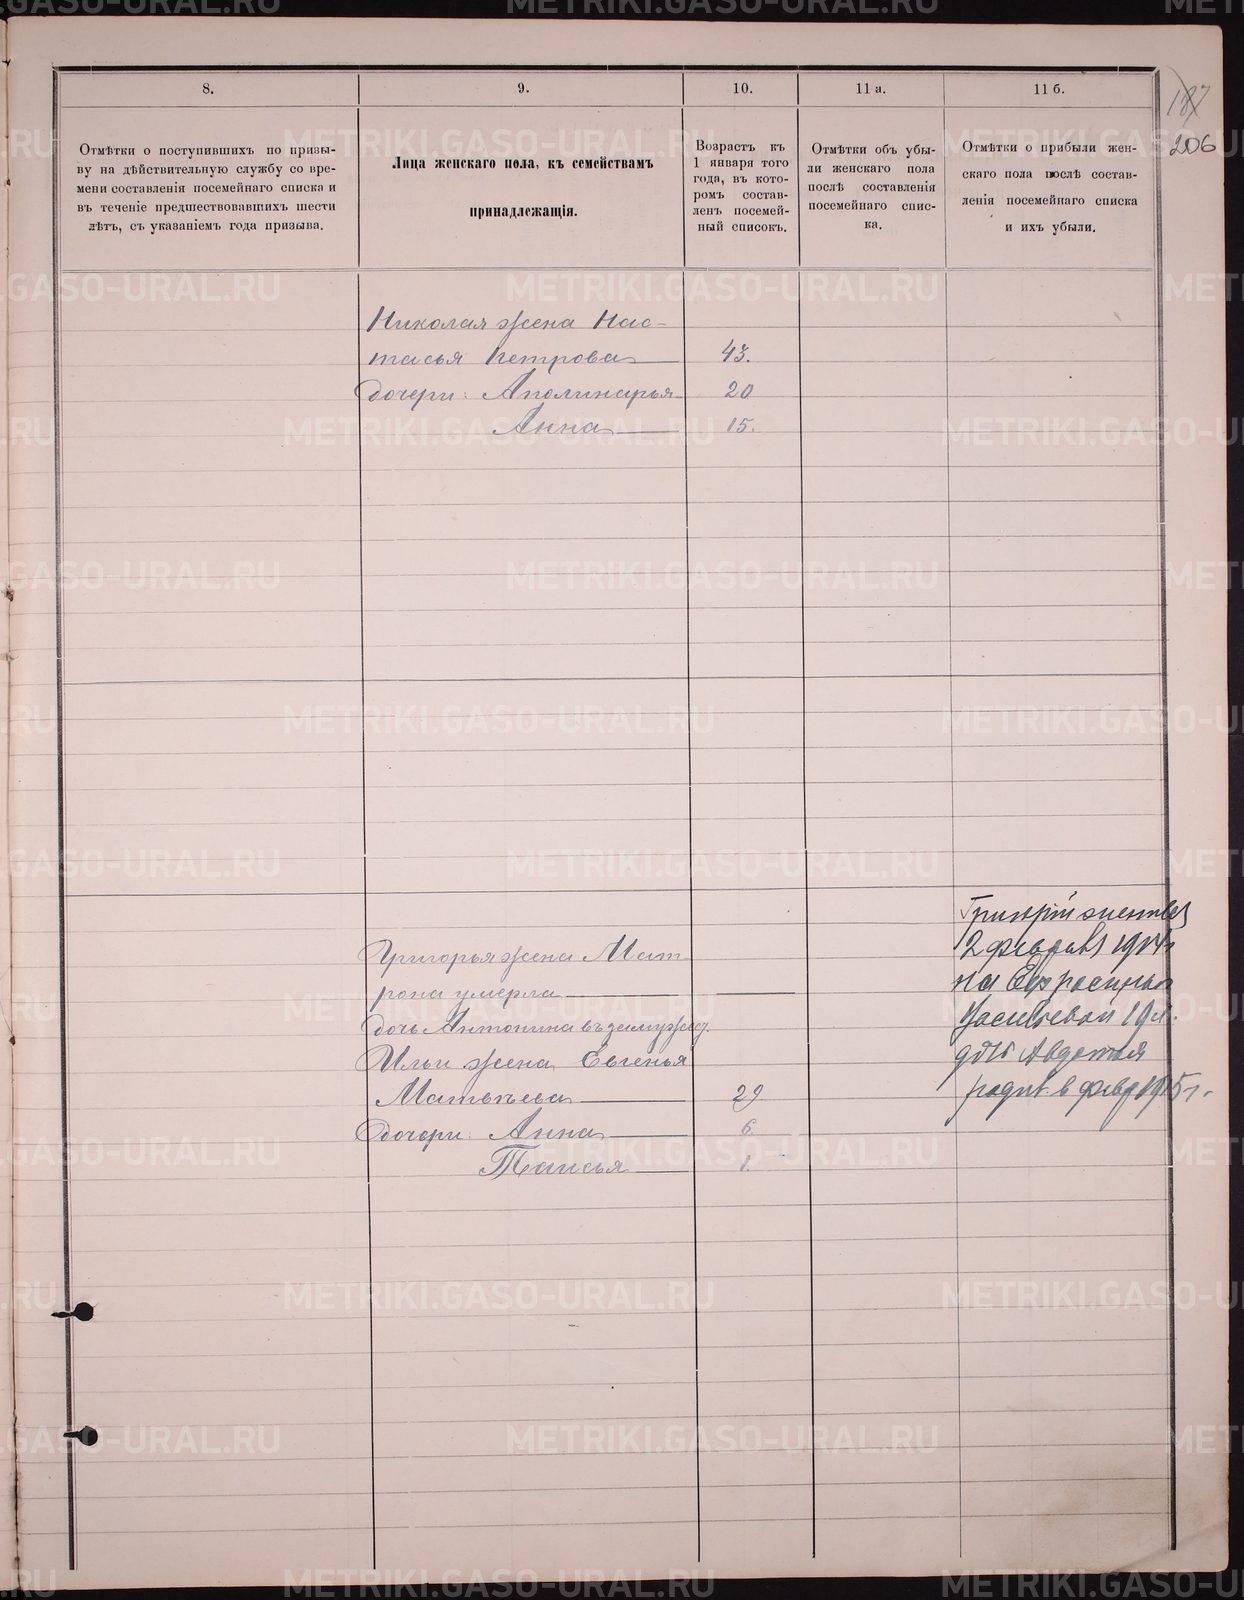 187
206
8.
9.
10.
11 а.
11 б.
Отмѣтки о поступившихъ по призы-
ву на дѣйствительную службу со вре-
мени составленія посемейнаго списка и
въ теченіе предшествовавшихъ шести
лѣтъ, съ указаніемъ года призыва.
Лица женскаго пола, къ семействамъ
принадлежащія.
Возрастъ къ
1 января того
года, въ кото-
ромъ состав-
ленъ посемей-
ный списокъ.
Отмѣтки объ убы-
ли женскаго пола
послѣ составленія
посемейнаго спис-
ка.
Отмѣтки о прибыли жен-
скаго пола послѣ состав-
ленія посемейнаго списка
и ихъ убыли.
Николая жена Нас-
тасья Петрова 43.
дочери: Аполинарья 20
Анна 15.
Григорья жена Мат
рона умерла
дочь Антонина въ замужед.
Ильи жена Евгенья
Матвѣева 29
дочери: Анна 6.
Таисья 1.
Григорій женился
2 февраля 1914 г
на Ефросиньи
Васильевой 19 л.
дочь Авдотья
родил. в февр 1915 г.
METRIKI.GASO-URAL.RU